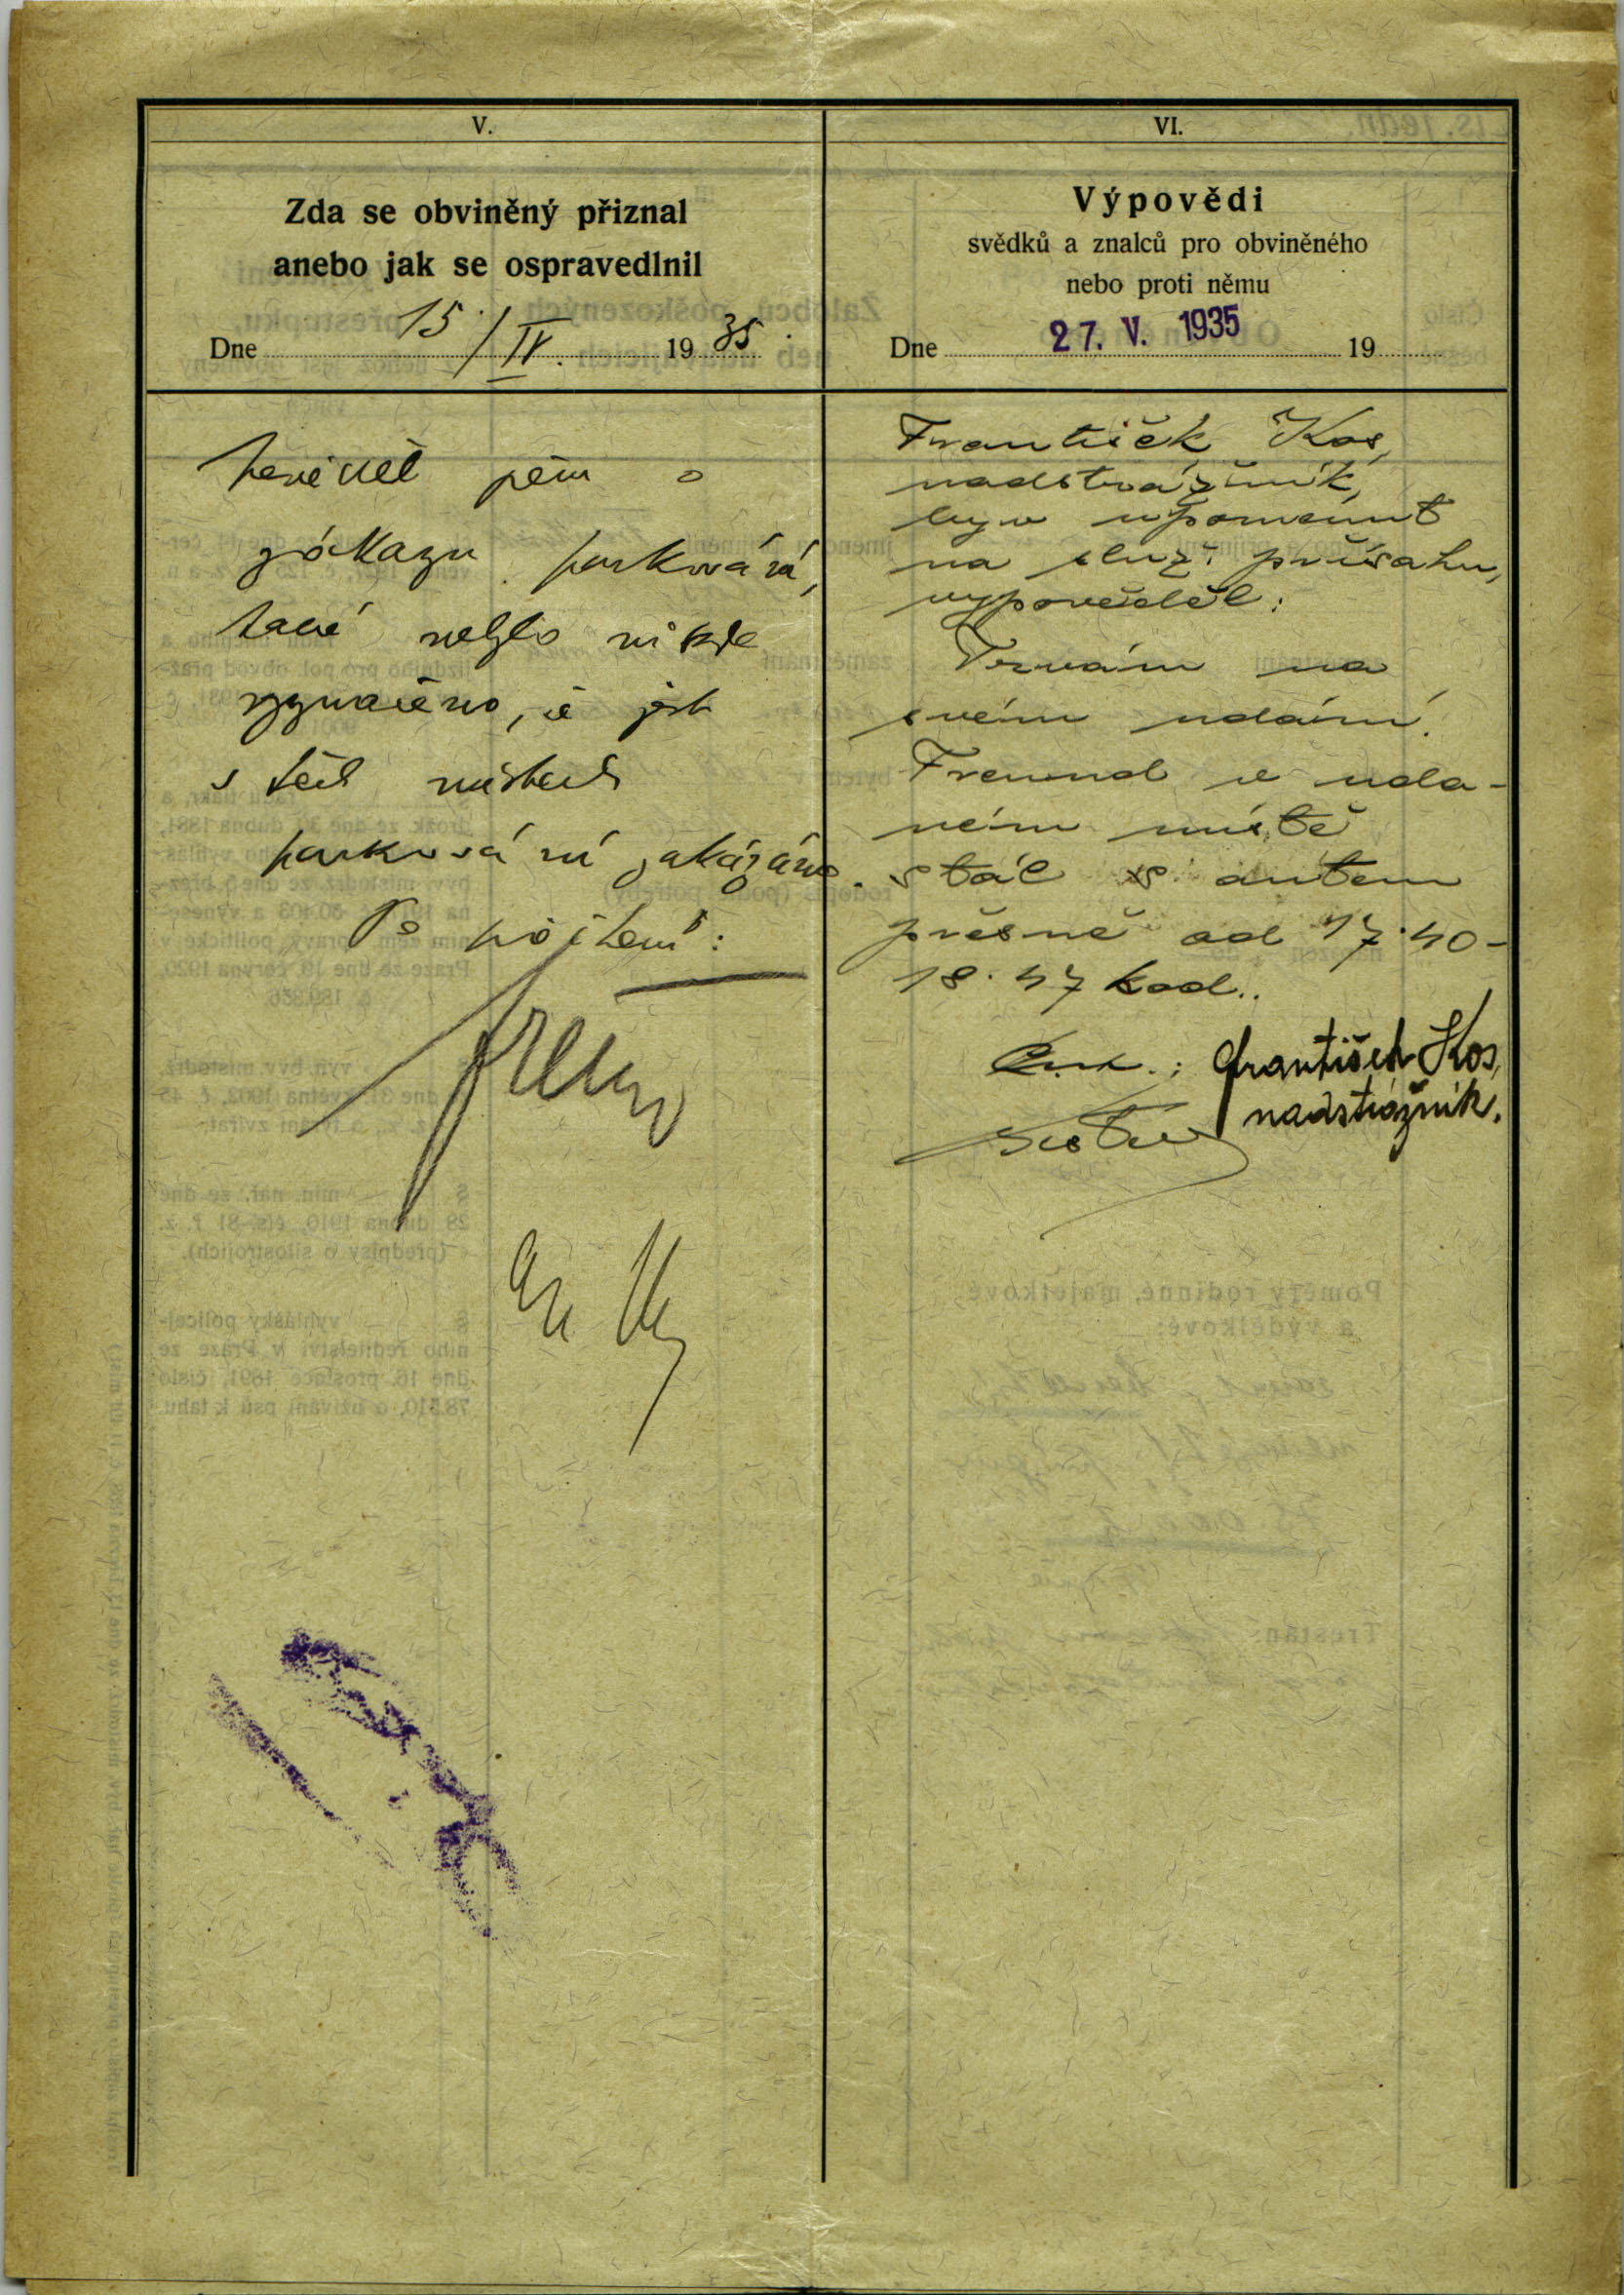 V.
Zda se obviněný přiznal
anebo jak se ospravedlnil
Dne 15./IV. 1935.
nevěděl jsem o
zákazu parkování,
také nebylo nikde
vyznačeno, že jest
v těch místech
parkování zakázáno.
Po přečtení:
VI.
Výpovědi
svědků a znalců pro obviněného
nebo proti němu
Dne 27. V. 1935 19
František Kos,
nadstrážník,
byv upomenut
na služ. přísahu,
vypověděl:
Trvám na
svém udání.
Freund v uda-
ném místě
stál s autem
přesně od 17.40-
18.47 hod..
František Kos,
nadstrážník.